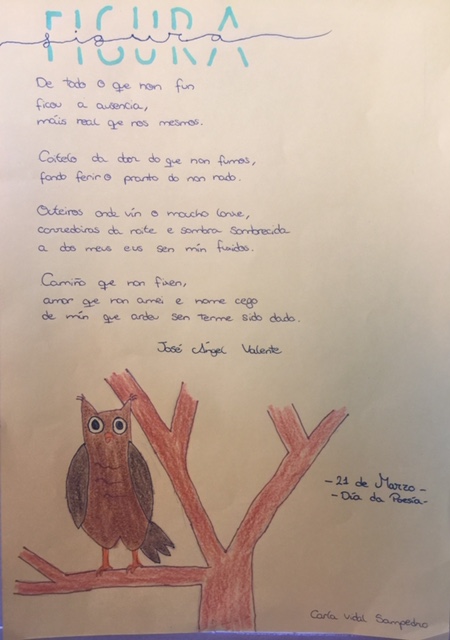 FIGURA
figura
De todo o que non fun
ficou a ausencia,
máis real que nos mesmos.
Coitelo da dor do que non fumos,
fondo ferir o pranto do non nado.
Outeiros onde vin o moucho
corredoiras da noite e sombra sombrecida
a dos meus eus sen min fuxidos.
Camiño que non fixen,
amor que non amei e nome cego
de min que ardeu sen terme sido dado.
José Ángel Valente
- 21 de Marzo -
- Día da Poesía -
Carla Vidal Sampedro